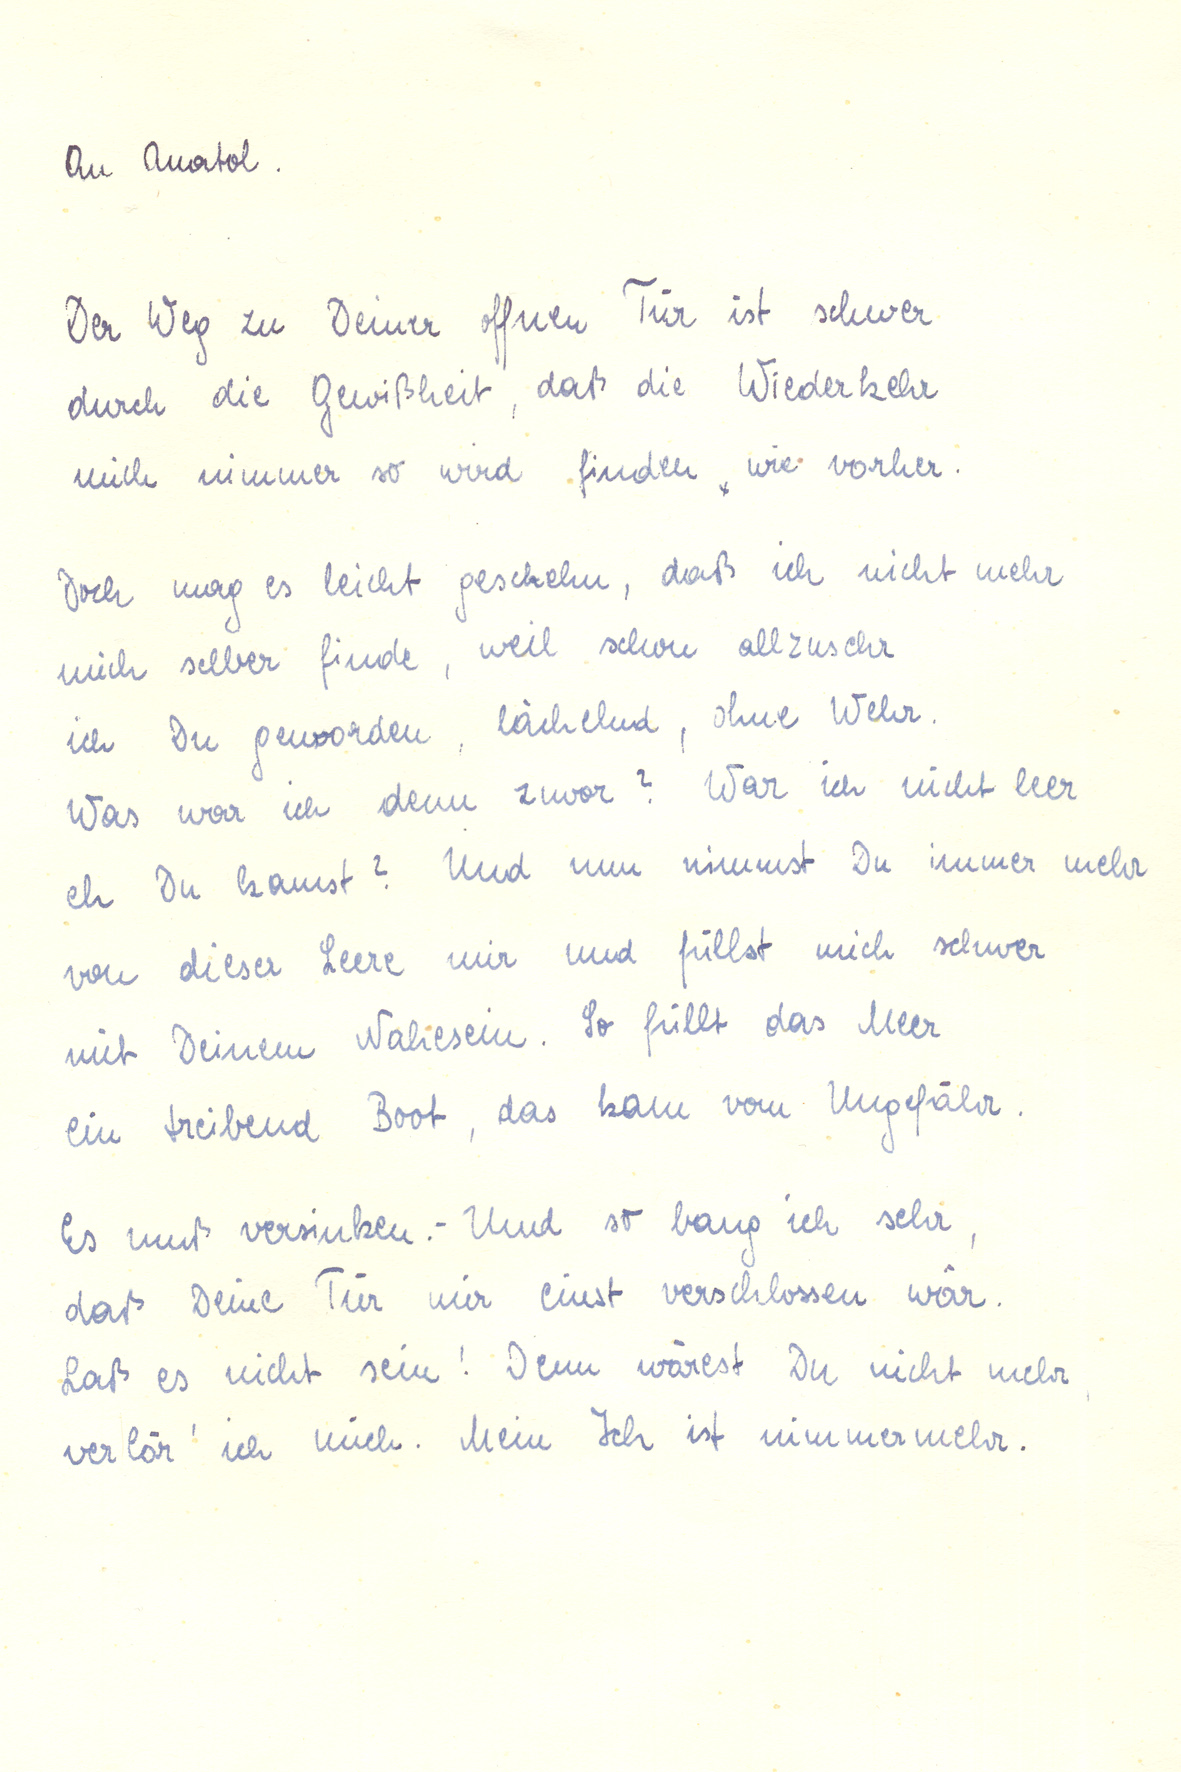 An Anatol.
Der Weg zu Deiner offnen Tür ist schwer
durch die Gewißheit, daß die Wiederkehr
mich nimmer so wird finden, wie vorher.
Doch mag es leicht geschehn, daß ich nicht mehr
mich selber finde, weil schon allzusehr
ich Du geworden, lächelnd, ohne Wehr.
Was war ich denn zuvor? War ich nicht leer
eh Du kamst? Und nun nimmst Du immer mehr
von dieser Leere mir und füllst mich schwer
mit Deinem Nahesein. So füllt das Meer
ein treibend Boot, das kam vom Ungefähr.
Es muß versinken.- Und so bang ich sehr,
daß Deine Tür mir einst verschlossen wär.
Laß es nicht sein! Denn wärest Du nicht mehr,
verlör' ich mich. Mein Ich ist nimmermehr.